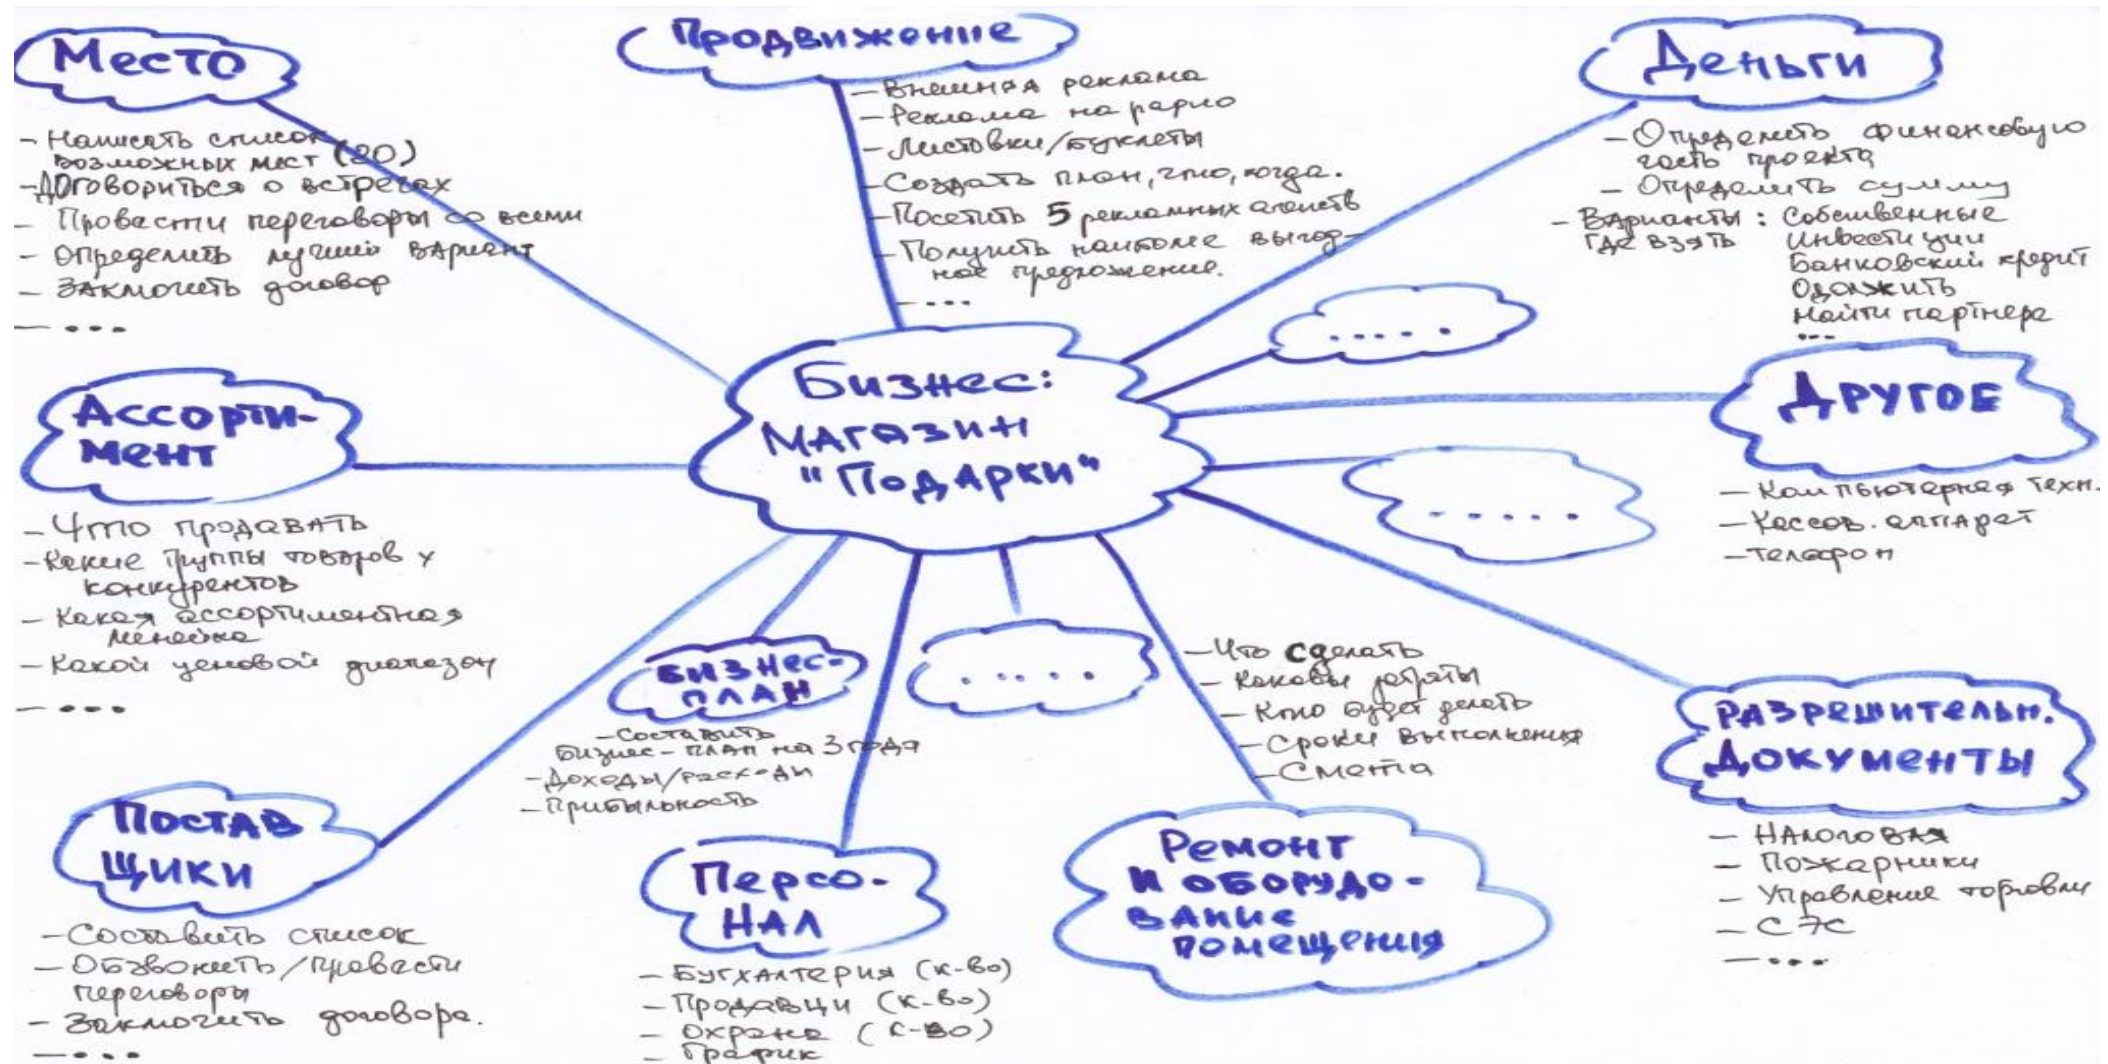 Место
- Написать список
возможных мест (20)
- Договориться о встречах
- Провести переговоры со всеми
- Определить лучший вариант
- Заключить договор
- ...
Продвижение
- Внешняя реклама
- Реклама на радио
- Листовки/буклеты
- Создать план, что, когда.
- Посетить 5 рекламных агенств
- Получить наиболе выгод-
ное предложение.
- ...
Деньги
- Определить финансовую
часть проекта
- Определить сумму
- Варианты : Собственные
где взять Инвестиции
Банковский кредит
Одолжить
Найти партнера
...
.....
Бизнес:
Магазин
"Подарки"
Ассорти-
мент
- Что продавать
- Какие группы товаров у
конкурентов
- Какая ассортиментная
линейка
- Какой ценовой диапазон
- ...
Другое
- Компьютерная техн.
- Кассов. аппарат
- Телефон
.....
Бизнес-
план
- Составить
бизнес-план на 3 года
- Доходы/расходы
- Прибыльность
.....
- Что сделать
- Каковы затраты
- Кто будет делать
- Сроки выполнения
- Смета
Ремонт
и оборудо-
вание
помещения
Разрешительн.
документы
- Налоговая
- Пожарники
- Управление торговли
- СЭС
- ...
Постав
щики
- Составить список
- Обзвонить/провести
переговоры
- Заключить договора.
- ...
Персо-
нал
- Бухгалтерия (к-во)
- Продавци (к-во)
- Охрана (к-во)
- График